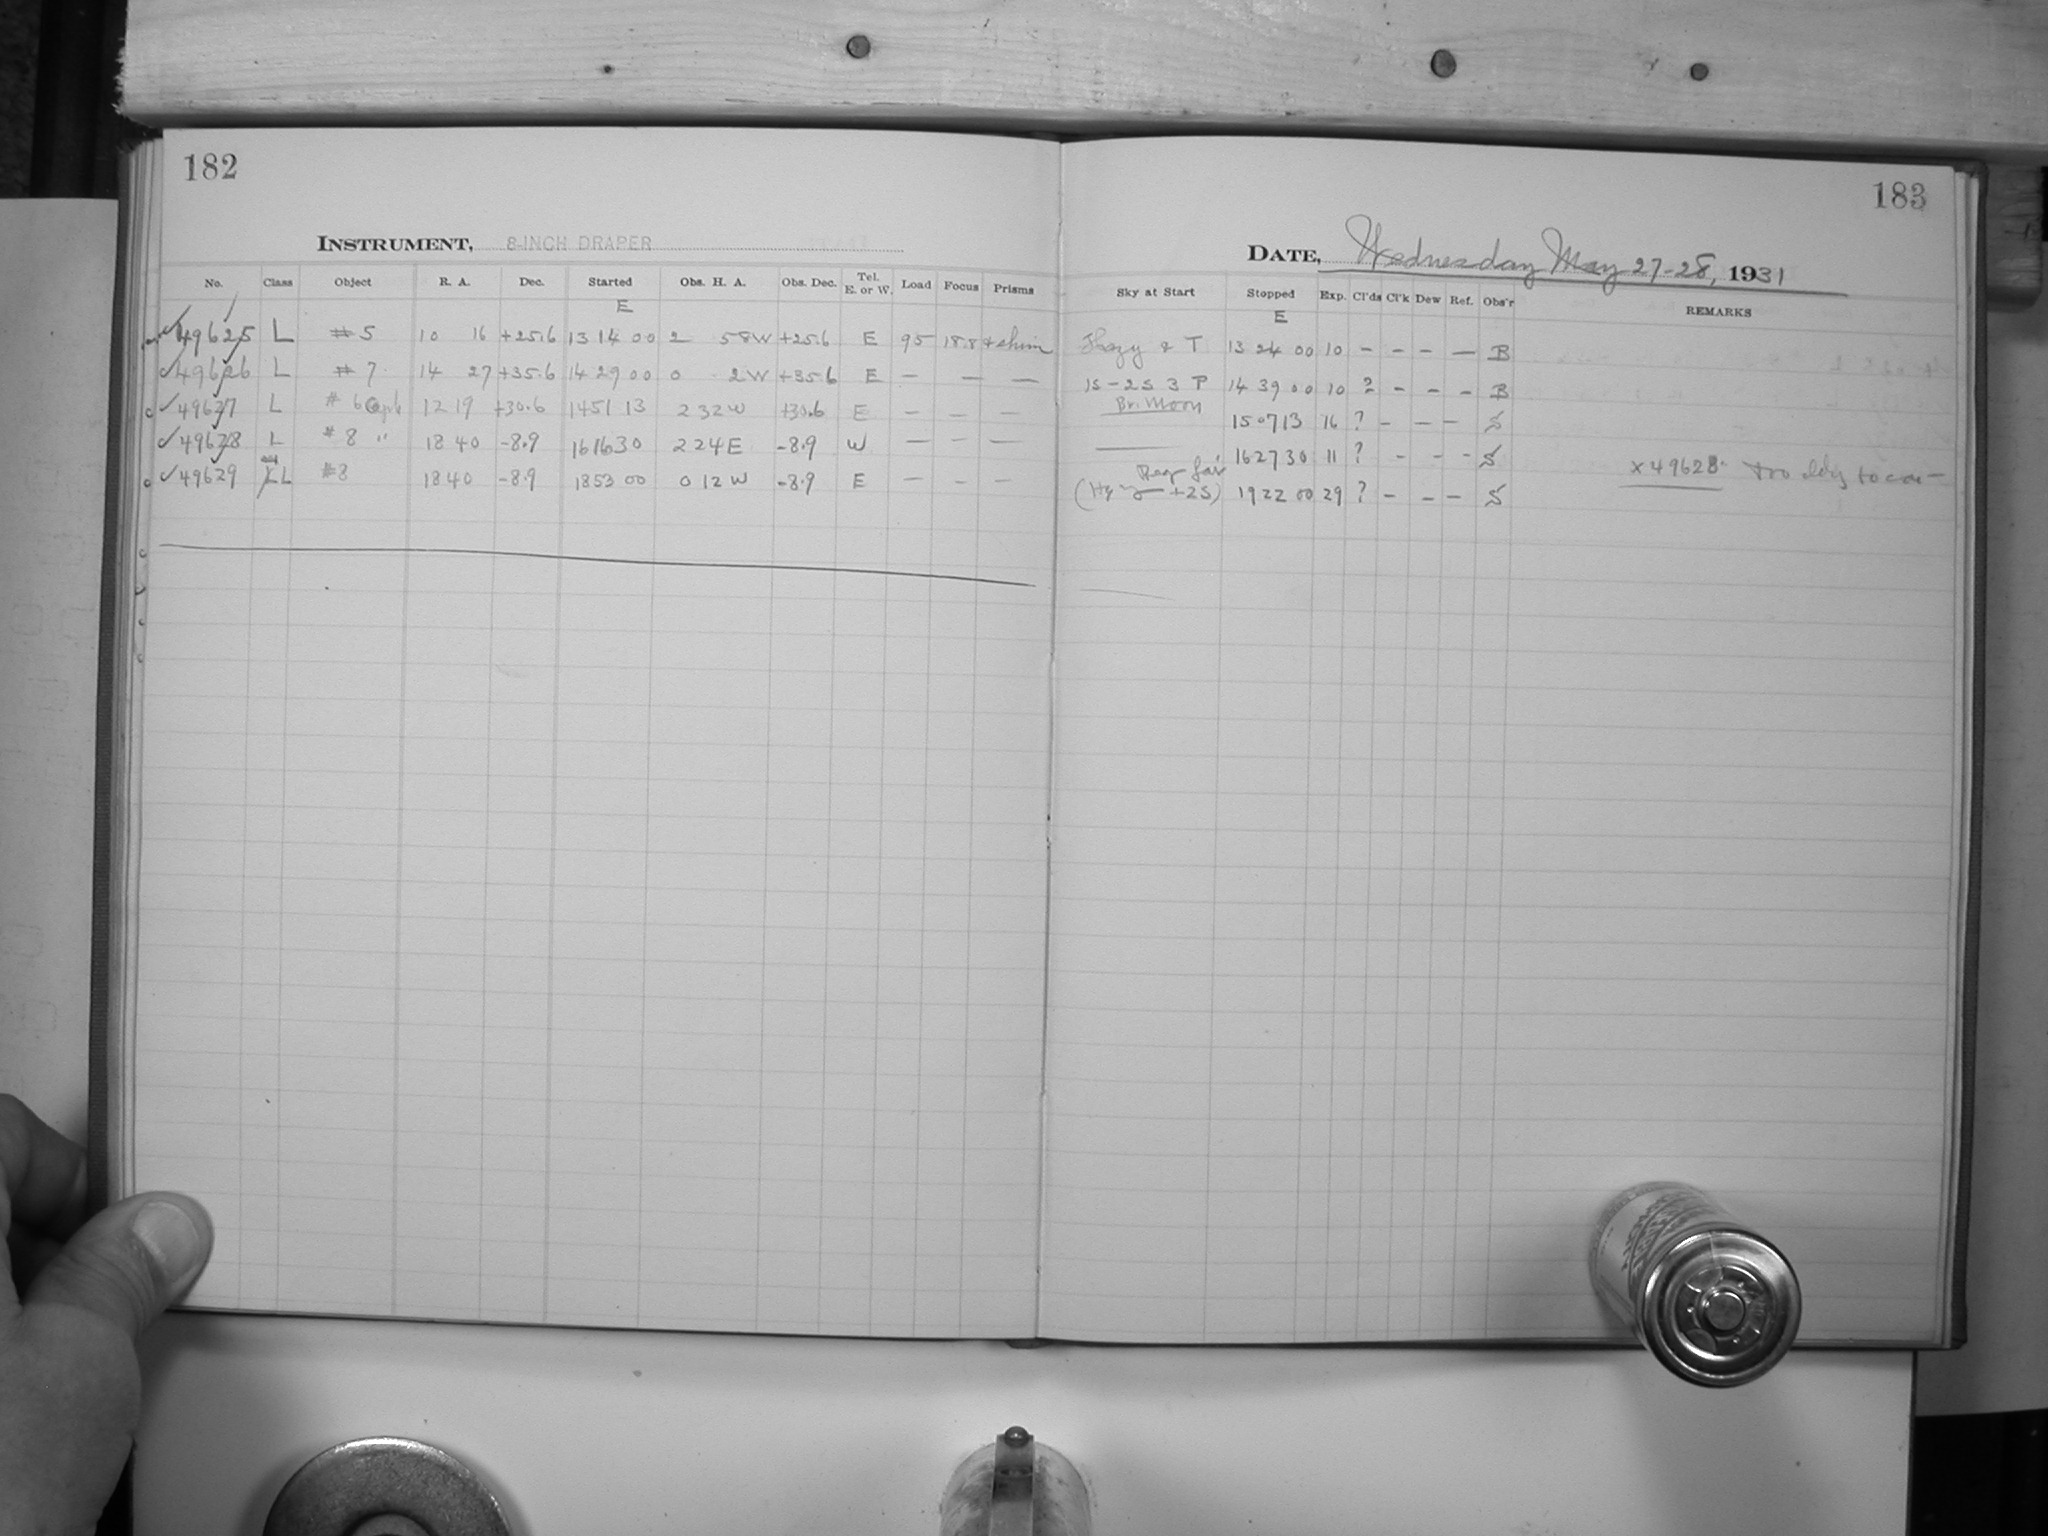 182
INSTRUMENT, 8-INCH DRAPER
No. Class Object R. A. Dec. Started Obs. H. A. Obs. Dec. Tel. E. or W. Load Focus Prisms
E
49625 L #5 10 16 +25.6 13 14 00 2 58W +25.6 E 95 18.8
49626 L #7 14 27 +35.6 14 29 00 0 2W +35.6 E — — —
49627 L #6 12 19 +30.6 14 51 13 2 32W +30.6 E — — —
49628 L #8 " 18 40 -8.9 16 16 30 2 24E -8.9 W — — —
49629 L #8 18 40 -8.9 18 53 00 0 12W -8.9 E — — —
183
DATE, Wednesday May 27-28, 1931
Sky at Start Stopped Exp. Cl'ds Cl'k Dew Ref. Obs'r REMARKS
E
Hazy & T 13 24 00 10 — — — — B
1S-2S 3 P 14 39 00 10 ? — — — B
Br. Moon 15 07 13 16 ? — — — S
—— 16 27 30 11 ? — — — S x 49628 too
fair
+2S) 19 22 00 29 ? — — — S